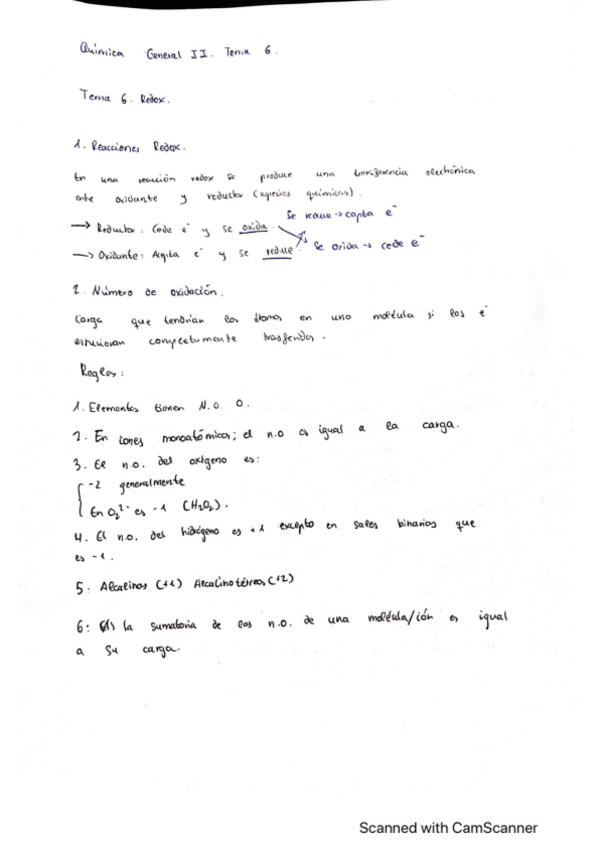 Química General II. Tema 6.
Tema 6. Redox.
1. Reacciones Redox.
En una reacción redox se produce una transferencia electrónica
ente oxidante y reductor (especies químicas).
Se reduce → capta e⁻
→ Reductor: Cede e⁻ y se oxida
→ Oxidante: Acepta e⁻ y se reduce. Se oxida → cede e⁻
2. Número de oxidación.
Carga que tendrían los átomos en una molécula si los e⁻
estuvieran completamente trasferidos.
Reglas:
1. Elementos tienen N.O. 0.
2. En iones monoatómicos; el n.o es igual a la carga.
3. El n.o. del oxígeno es:
-2 generalmente
En O₂²⁻ es -1 (H₂O₂).
4. El n.o. del hidrógeno es +1 excepto en sales binarias que
es -1.
5: Alcalinos (+1) Alcalinotérreos (+2)
6: la sumatoria de los n.o. de una molécula/ión es igual
a su carga.
Scanned with CamScanner